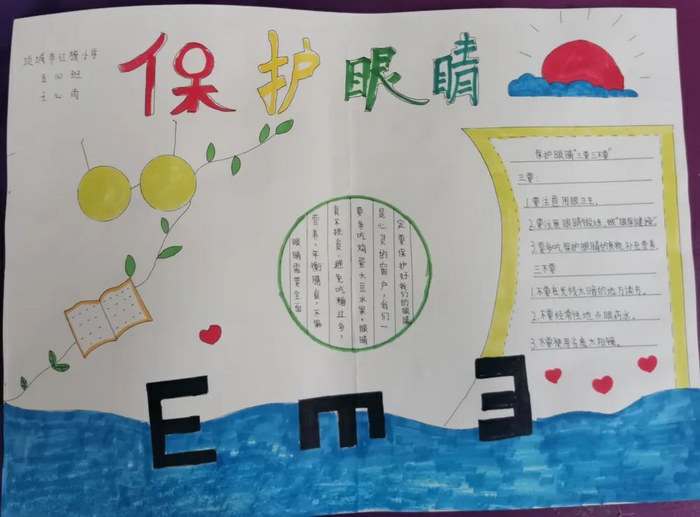 保护眼睛
项城市红旗小学
眼睛需要全面
营养,平衡膳食,不偏
食不挑食,避免吃糖过多,
要多吃鸡蛋大豆水果,眼睛
是心灵的窗户,我们一
定要保护好我们的眼睛
保护眼睛"三要三不要"
三要:
1.要注意用眼卫生。
2.要注意眼睛锻炼,做"眼保健操"。
3.要多吃保护眼睛的食物,补充营养。
三不要
1.不要在光线太暗的地方读书。
2.不要经常性地点眼药水。
3.不要使用劣质太阳镜。
E m Ǝ